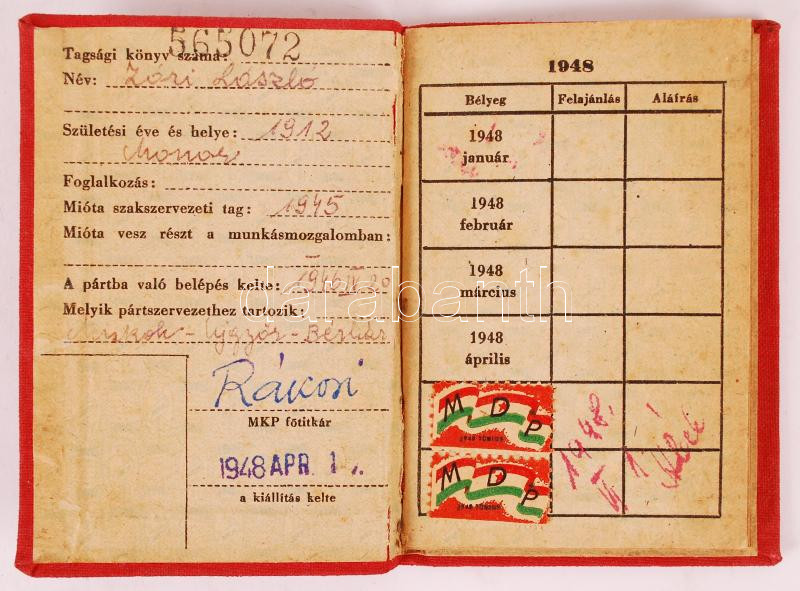 Tagsági könyv száma: 565072
Név: Zori László
Születési éve és helye: 1912
Monor
Foglalkozás:
Mióta szakszervezeti tag: 1945
Mióta vesz részt a munkásmozgalomban:
A pártba való belépés kelte: 1946 IV 20
Melyik pártszervezethez tartozik:
Rákosi
MKP főtitkár
1948 APR 1
a kiállítás kelte
1948
Bélyeg Felajánlás Aláírás
1948
január
1948
február
1948
március
1948
április
MDP
1948 JÚNIUS
MDP
1948 JÚNIUS
1948.
VI 1
darabanth